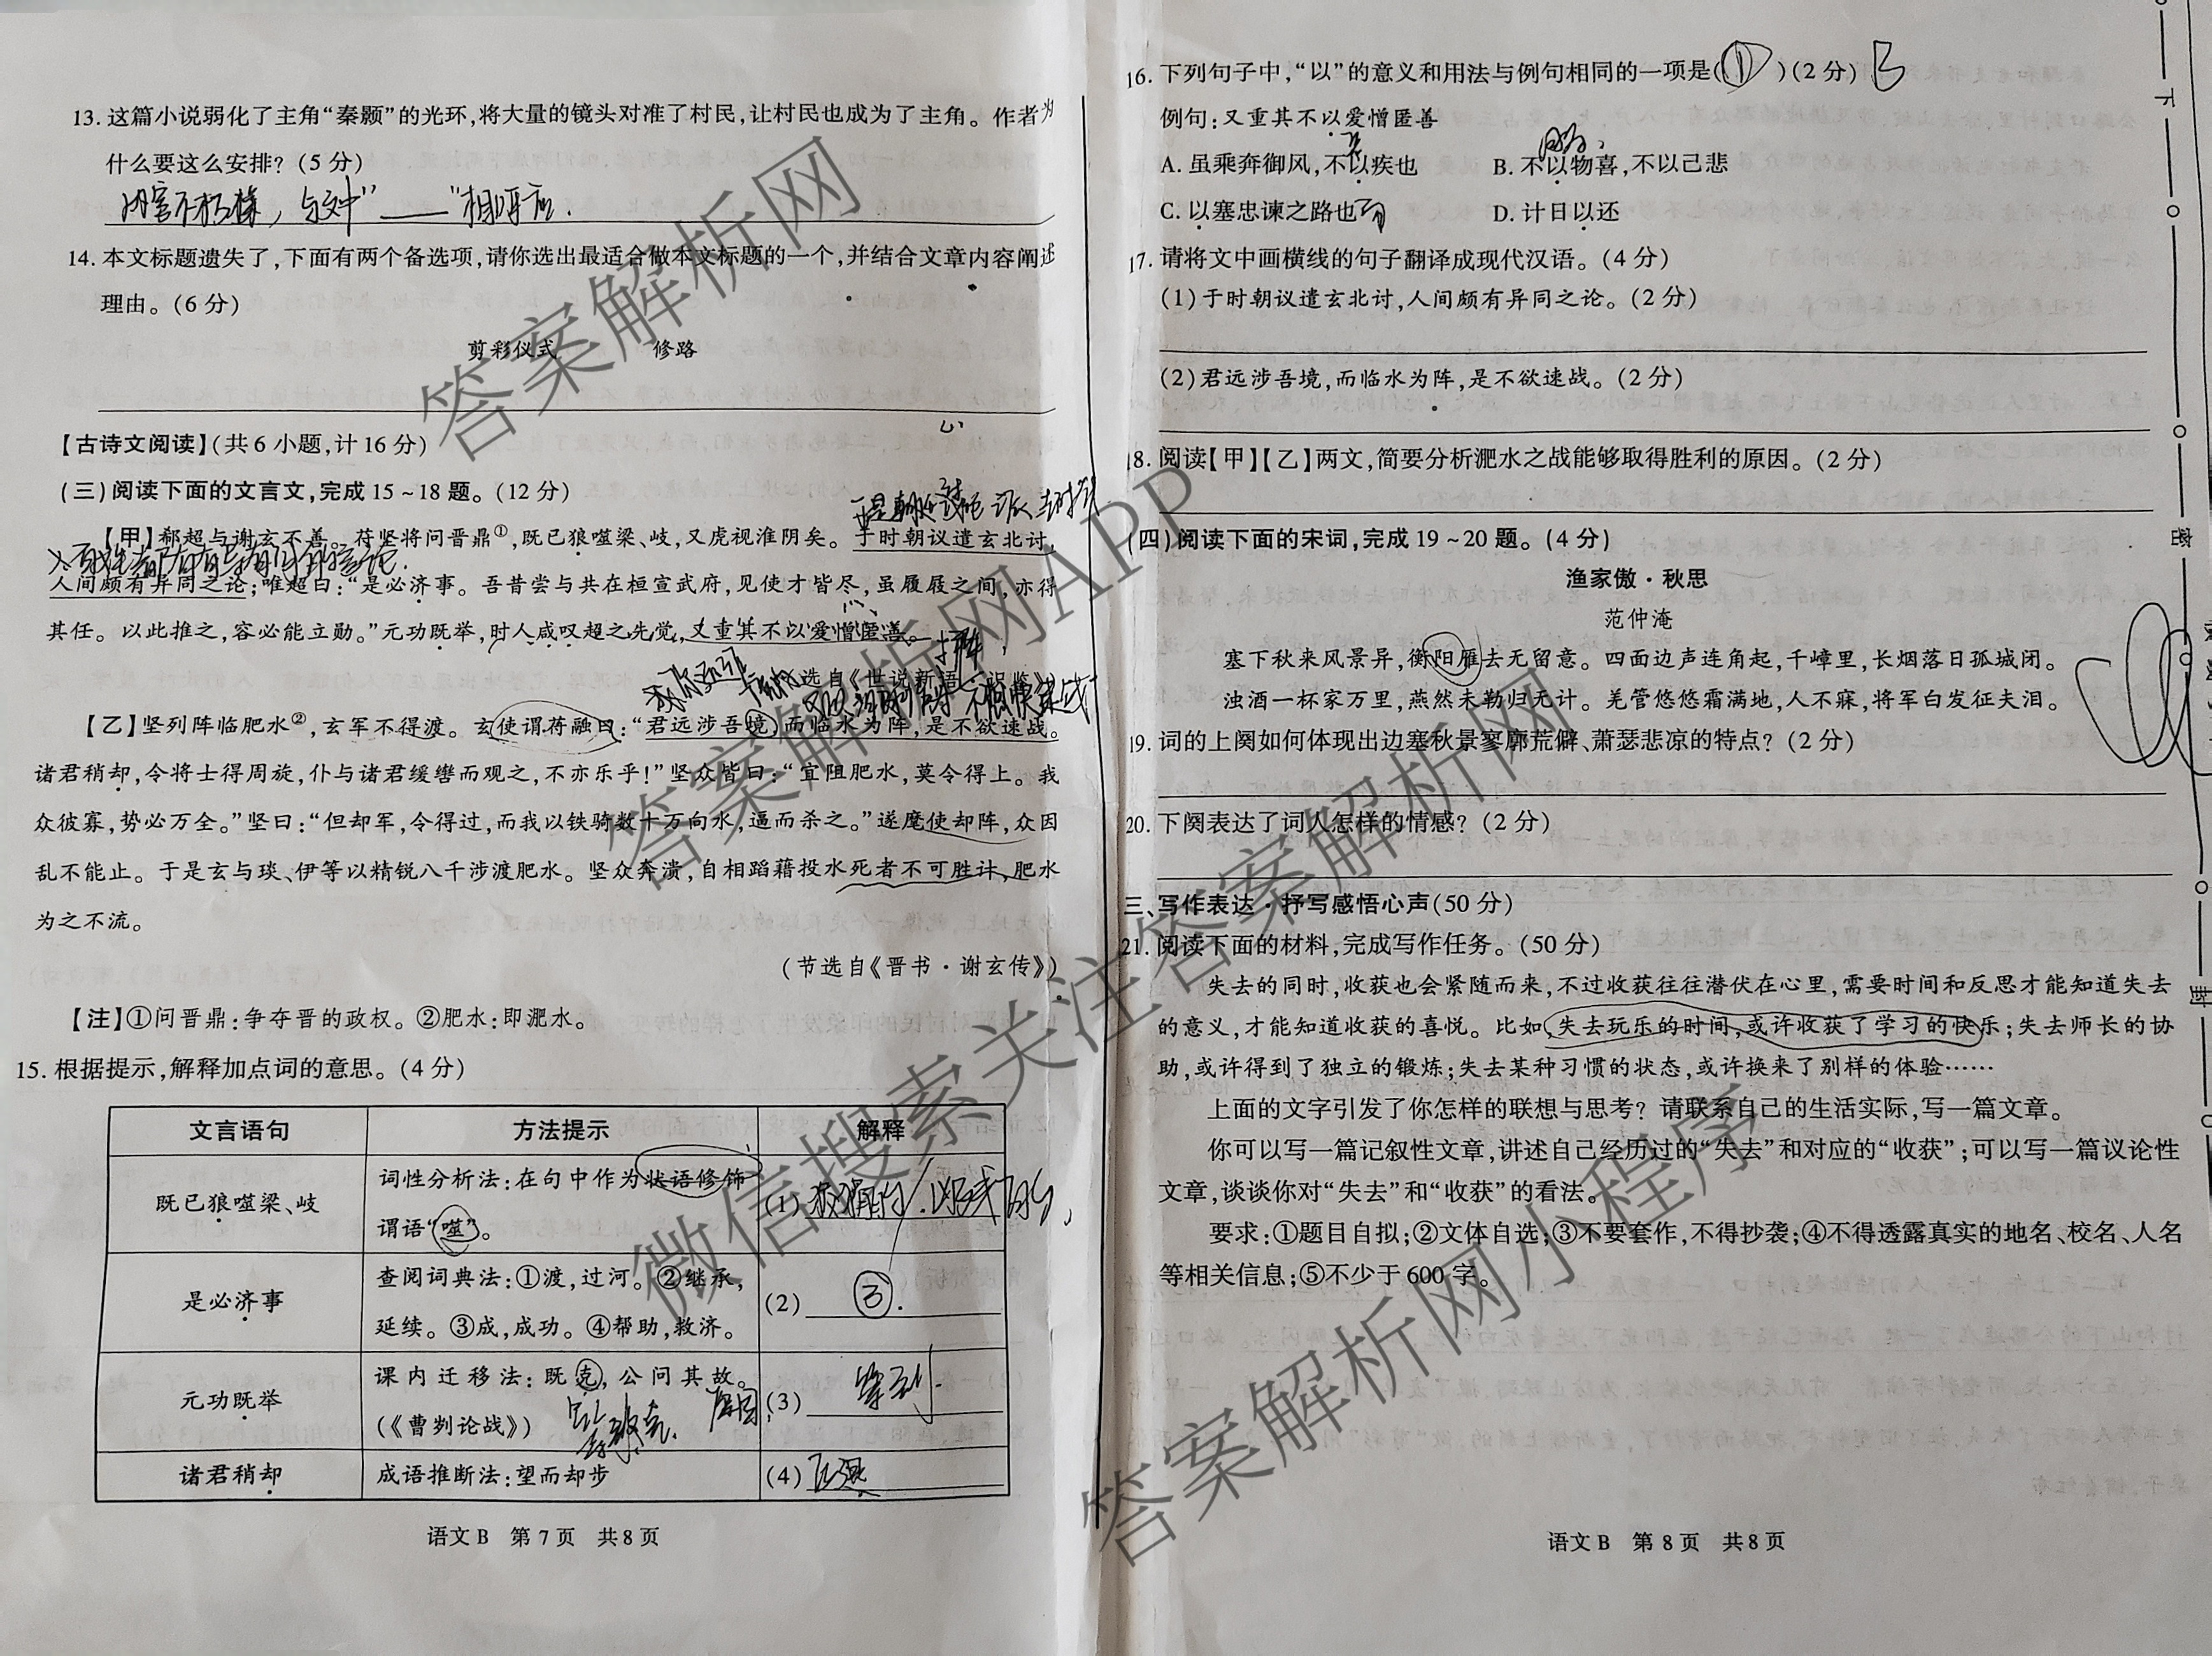 13. 这篇小说弱化了主角“秦颢”的光环,将大量的镜头对准了村民,让村民也成为了主角。作者为
什么要这么安排?(5 分)
14. 本文标题遗失了,下面有两个备选项,请你选出最适合做本文标题的一个,并结合文章内容阐述
理由。(6 分)
剪彩仪式 修路
【古诗文阅读】(共 6 小题,计 16 分)
(三)阅读下面的文言文,完成 15 ~ 18 题。(12 分)
【甲】郗超与谢玄不善。苻坚将问晋鼎①,既已狼噬梁、岐,又虎视淮阴矣。于时朝议遣玄北讨,
人间颇有异同之论;唯超曰:“是必济事。吾昔尝与共在桓宣武府,见使才皆尽,虽履屐之间,亦得
其任。以此推之,容必能立勋。”元功既举,时人咸叹超之先觉,又重其不以爱憎匿善。
选自《世说新语·识鉴》
【乙】坚列阵临肥水②,玄军不得渡。玄使谓苻融曰:“君远涉吾境,而临水为阵,是不欲速战。
诸君稍却,令将士得周旋,仆与诸君缓辔而观之,不亦乐乎!”坚众皆曰:“宜阻肥水,莫令得上。我
众彼寡,势必万全。”坚曰:“但却军,令得过,而我以铁骑数十万向水,逼而杀之。”遂麾使却阵,众因
乱不能止。于是玄与琰、伊等以精锐八千涉渡肥水。坚众奔溃,自相蹈藉投水死者不可胜计,肥水
为之不流。
(节选自《晋书·谢玄传》)
【注】①问晋鼎:争夺晋的政权。②肥水:即淝水。
15. 根据提示,解释加点词的意思。(4 分)
文言语句 方法提示 解释
既已狼噬梁、岐 词性分析法:在句中作为状语修饰
谓语“噬”。 (1)
是必济事 查阅词典法:①渡,过河。②继承,
延续。③成,成功。④帮助,救济。 (2) ③.
元功既举 课内迁移法:既克,公问其故。
(《曹刿论战》) (3)
诸君稍却 成语推断法:望而却步 (4)
语文 B 第 7 页 共 8 页
16. 下列句子中,“以”的意义和用法与例句相同的一项是( )(2 分) B
例句:又重其不以爱憎匿善
A. 虽乘奔御风,不以疾也 B. 不以物喜,不以己悲
C. 以塞忠谏之路也 D. 计日以还
17. 请将文中画横线的句子翻译成现代汉语。(4 分)
(1)于时朝议遣玄北讨,人间颇有异同之论。(2 分)
(2)君远涉吾境,而临水为阵,是不欲速战。(2 分)
18. 阅读【甲】【乙】两文,简要分析淝水之战能够取得胜利的原因。(2 分)
(四)阅读下面的宋词,完成 19 ~ 20 题。(4 分)
渔家傲·秋思
范仲淹
塞下秋来风景异,衡阳雁去无留意。四面边声连角起,千嶂里,长烟落日孤城闭。
浊酒一杯家万里,燕然未勒归无计。羌管悠悠霜满地,人不寐,将军白发征夫泪。
19. 词的上阕如何体现出边塞秋景寥廓荒僻、萧瑟悲凉的特点?(2 分)
20. 下阕表达了词人怎样的情感?(2 分)
三、写作表达·抒写感悟心声(50 分)
21. 阅读下面的材料,完成写作任务。(50 分)
失去的同时,收获也会紧随而来,不过收获往往潜伏在心里,需要时间和反思才能知道失去
的意义,才能知道收获的喜悦。比如,失去玩乐的时间,或许收获了学习的快乐;失去师长的协
助,或许得到了独立的锻炼;失去某种习惯的状态,或许换来了别样的体验……
上面的文字引发了你怎样的联想与思考?请联系自己的生活实际,写一篇文章。
你可以写一篇记叙性文章,讲述自己经历过的“失去”和对应的“收获”;可以写一篇议论性
文章,谈谈你对“失去”和“收获”的看法。
要求:①题目自拟;②文体自选;③不要套作,不得抄袭;④不得透露真实的地名、校名、人名
等相关信息;⑤不少于 600 字。
语文 B 第 8 页 共 8 页
下
密
封
答案解析网
答案解析网APP
微信搜索关注答案解析网
答案解析网小程序